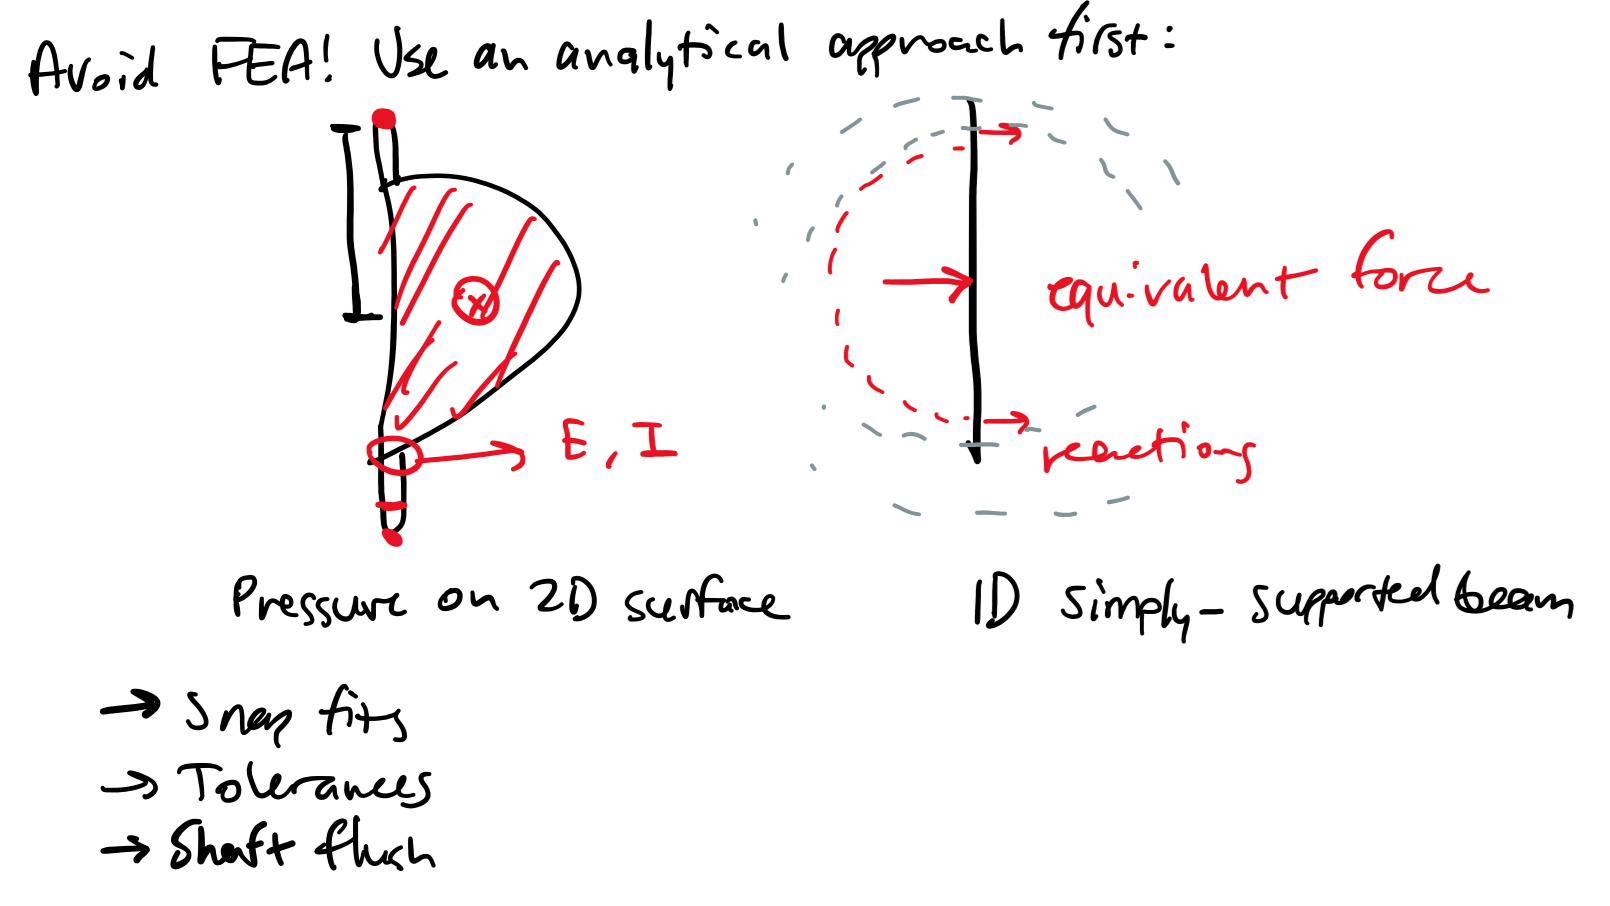 Avoid FEA! Use an analytical approach first:
equivalent force
E, I
reactions
Pressure on 2D surface
1D simply-supported beam
→ Snap fits
→ Tolerances
→ Shaft flush